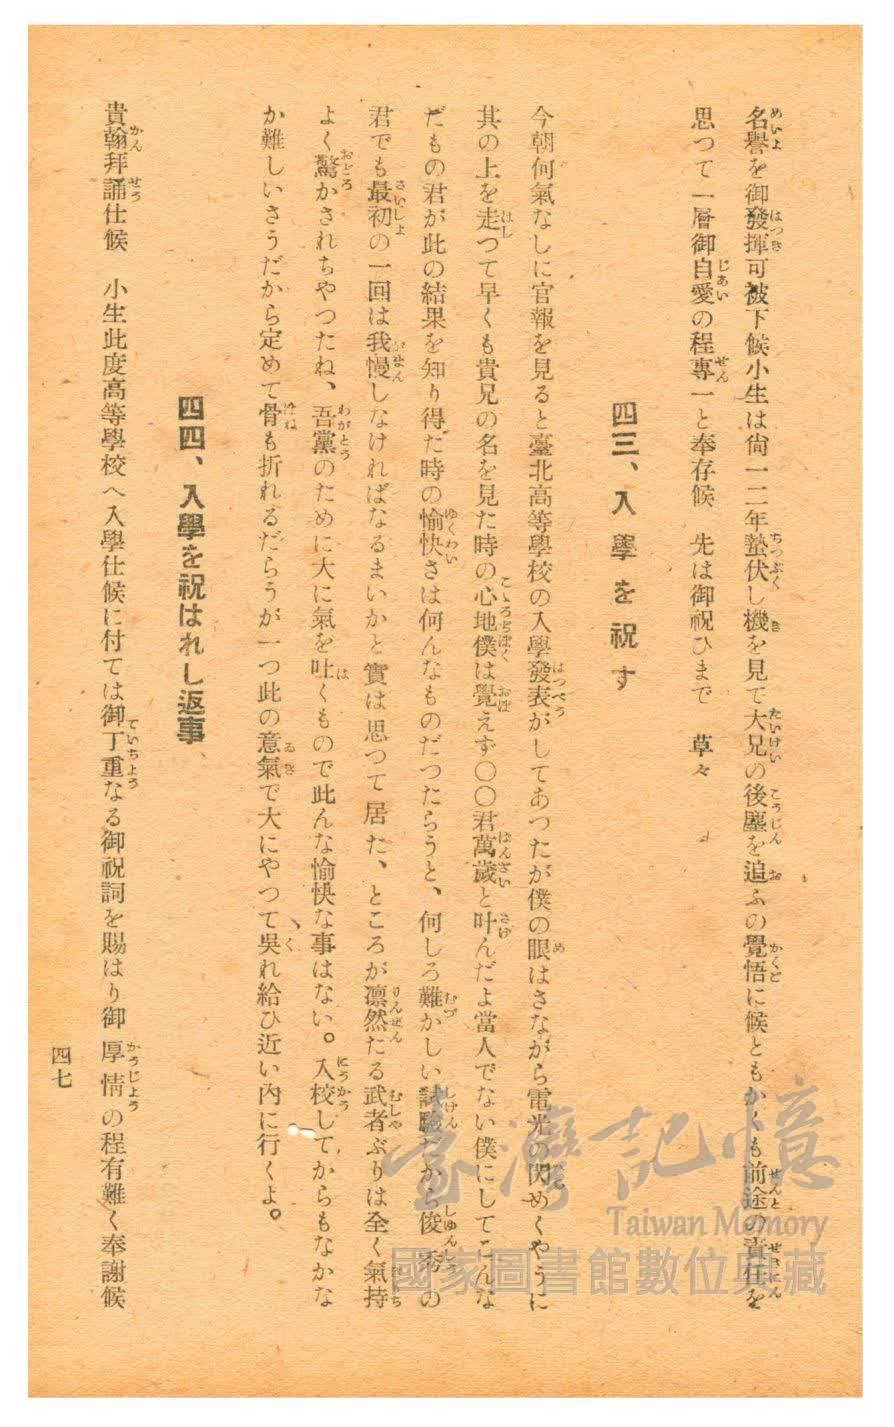 名譽を御發揮可被下候小生は尙一二年蟄伏し機を見て大兄の後塵を追ふの覺悟に候ともかくも前途の責任を
思つて一層御自愛の程專一と奉存候　先は御祝ひまで　草々
四三、入學を祝す
今朝何氣なしに官報を見ると臺北高等學校の入學發表がしてあつたが僕の眼はさながら電光の閃めくやうに
其の上を走つて早くも貴兄の名を見た時の心地僕は覺えず〇〇君萬歲と叫んだよ當人でない僕にしてこんな
だもの君が此の結果を知り得た時の愉快さは何んなものだつたらうと、何しろ難かしい試驗だから俊秀の
君でも最初の一回は我慢しなければなるまいかと實は思つて居た、ところが凛然たる武者ぶりは全く氣持
よく驚かされちやつたね、吾黨のために大に氣を吐くもので此んな愉快な事はない。入校してからもなかな
か難しいさうだから定めて骨も折れるだらうが一つ此の意氣で大にやつて吳れ給ひ近い內に行くよ。
四四、入學を祝はれし返事
貴翰拜誦仕候　小生此度高等學校へ入學仕候に付ては御丁重なる御祝詞を賜はり御厚情の程有難く奉謝候
四七
臺灣記憶
Taiwan Memory
國家圖書館數位典藏